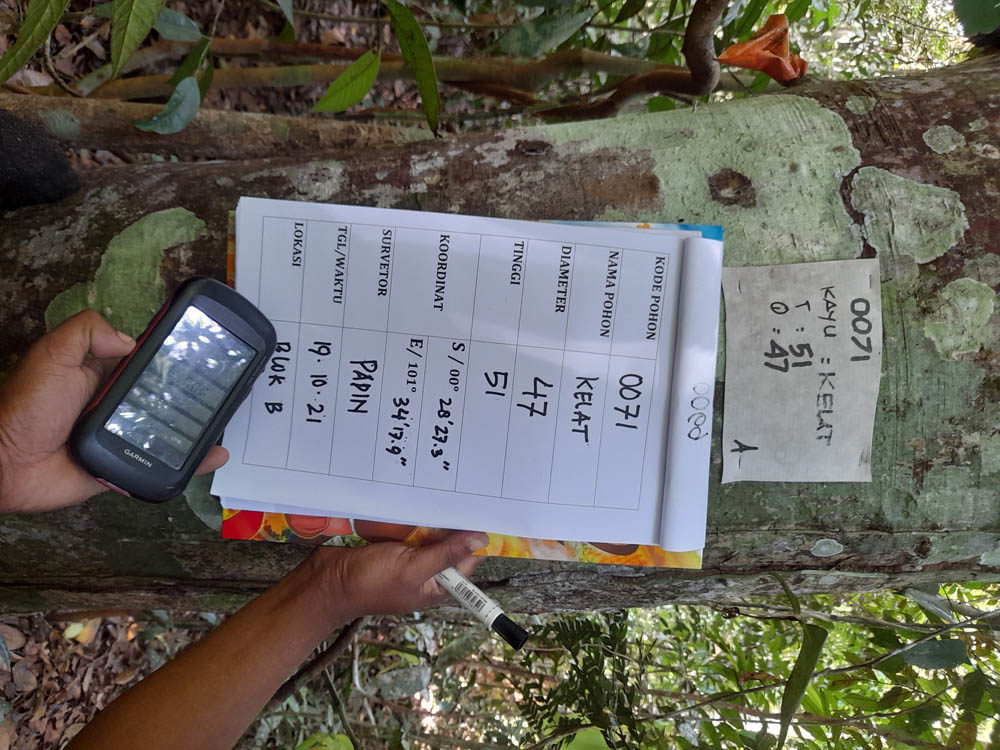 0071
KAYU : KELAT
T : 51
O : 47
A
KODE POHON 0071
NAMA POHON KELAT
DIAMETER 47
TINGGI 51
KOORDINAT S / 00° 28'27.3"
E/ 101° 34'17.9"
SURVETOR PAPIN
TGL/WAKTU 19.10.21
LOKASI BLOK B
GARMIN